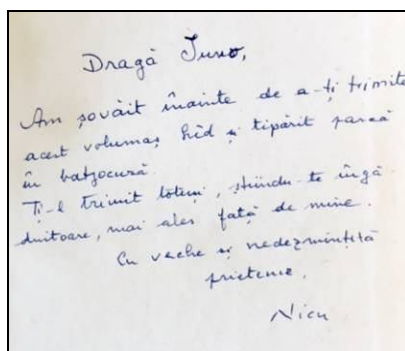 Dragă Juno,
Am șovăit înainte de a-ți trimite
acest volumaș hîd și tipărit parcă
în batjocură.
Ți-l trimit totuși, știindu-te îngă-
duitoare, mai ales față de mine.
Cu veche și nedezmințită
prietenie,
Nicu